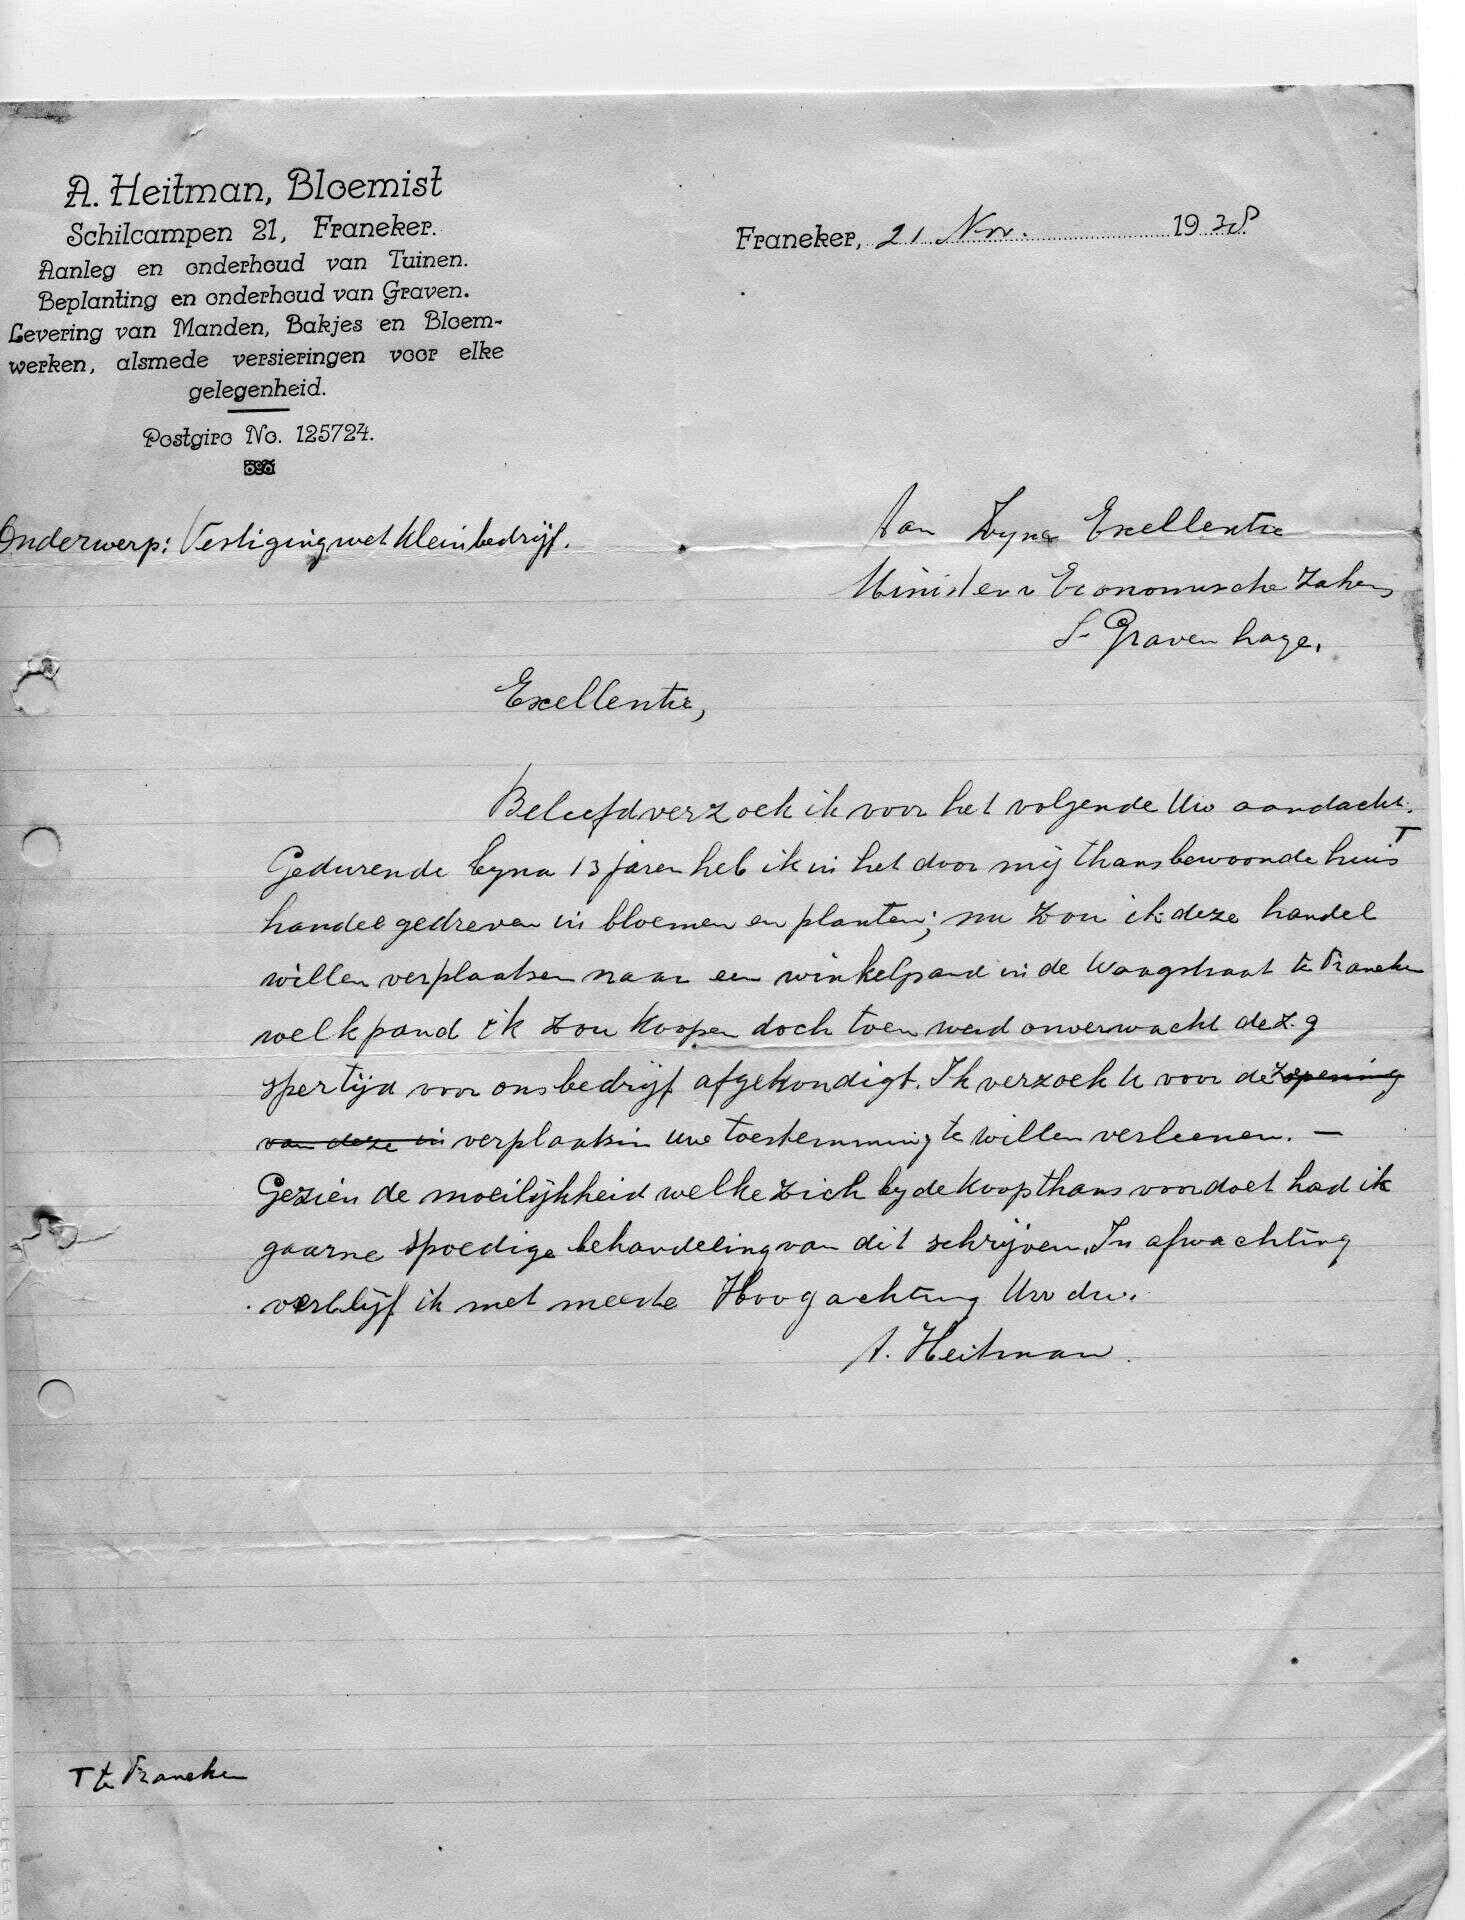 A. Heitman, Bloemist
Schilcampen 21, Franeker.
Aanleg en onderhoud van Tuinen.
Beplanting en onderhoud van Graven.
Levering van Manden, Bakjes en Bloem-
werken, alsmede versieringen voor elke
gelegenheid.
Postgiro No. 125724.
Franeker, 21 Nov. 1938.
Onderwerp: Vestigingwet kleinbedrijf.
Aan Zyne Exellentie
Minister v Economische Zaken
S-Gravenhage.
Exellentie,
Beleefd verzoek ik voor het volgende Uw aandacht.
Gedurende byna 13 jaren heb ik in het door mij thans bewoonde huis T
handel gedreven in bloemen en planten; nu zou ik deze handel
willen verplaatsen naar een winkelpand in de Waagstraat te Franeker
welk pand ik zou koopen doch toen werd onverwacht de z.g
spertijd voor ons bedrijf afgekondigt. Ik verzoek U voor deze opening
van deze in verplaatsin uwe toestemming te willen verleenen. —
Gezien de moeilijkheid welke zich by de koop thans voordoet had ik
gaarne spoedige behandeling van dit schrijven. In afwachting
verblijf ik met meeste Hoogachting Uw dw.
A. Heitman.
T te Franeker